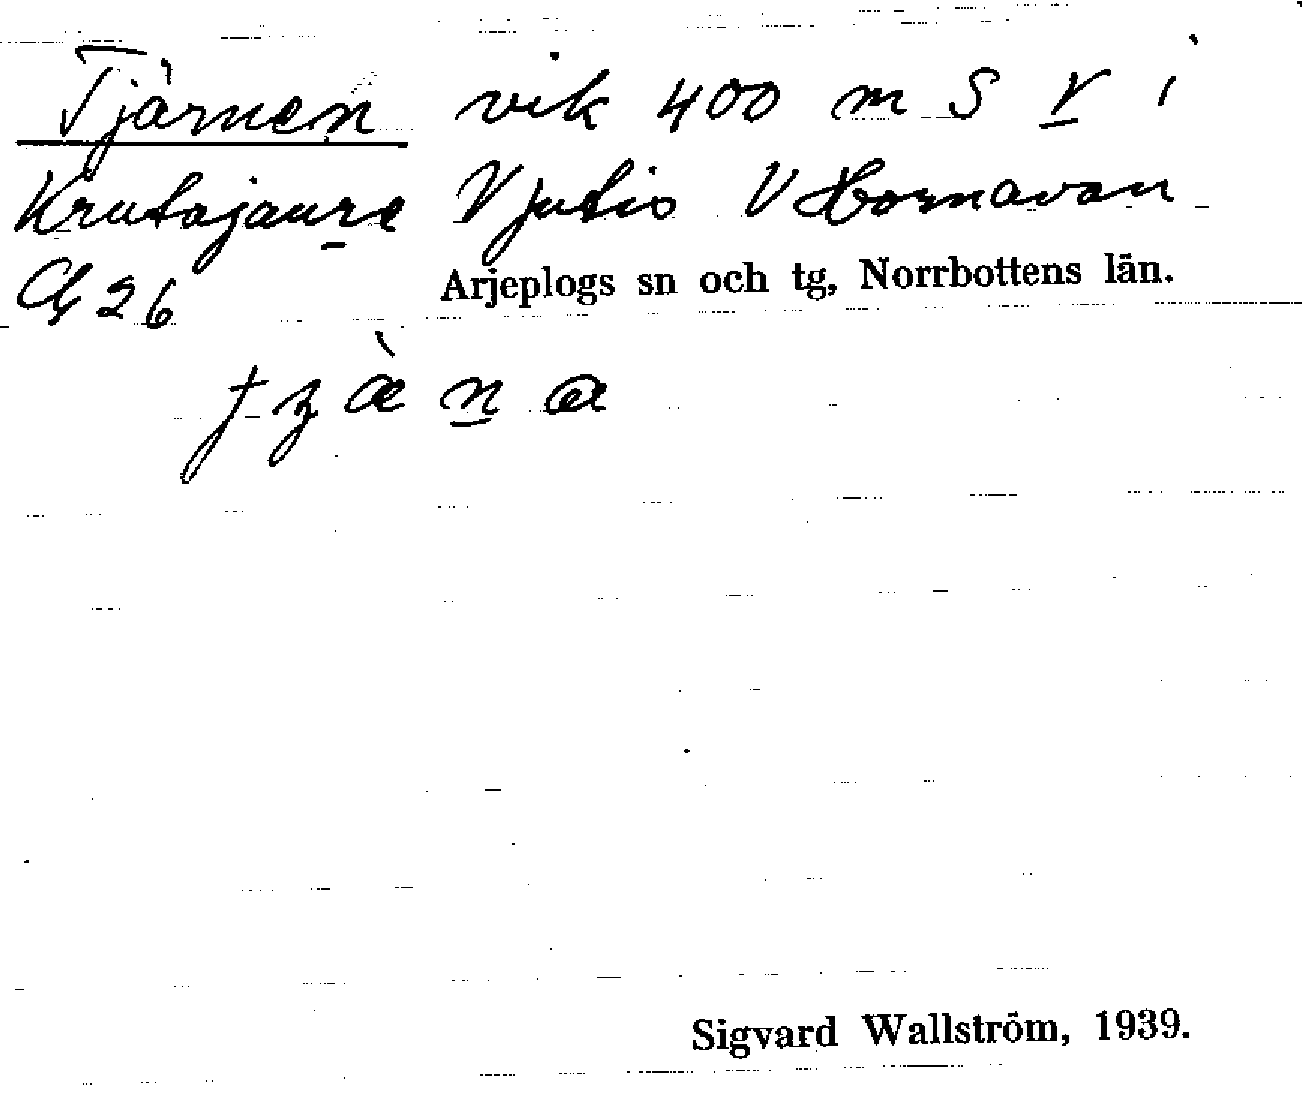 Tjärnen vik 400 m S V i
Krutajaure V Jutis V Hornavan
26
Arjeplogs sn och tg, Norrbottens län.
Sigvard Wallström, 1939.